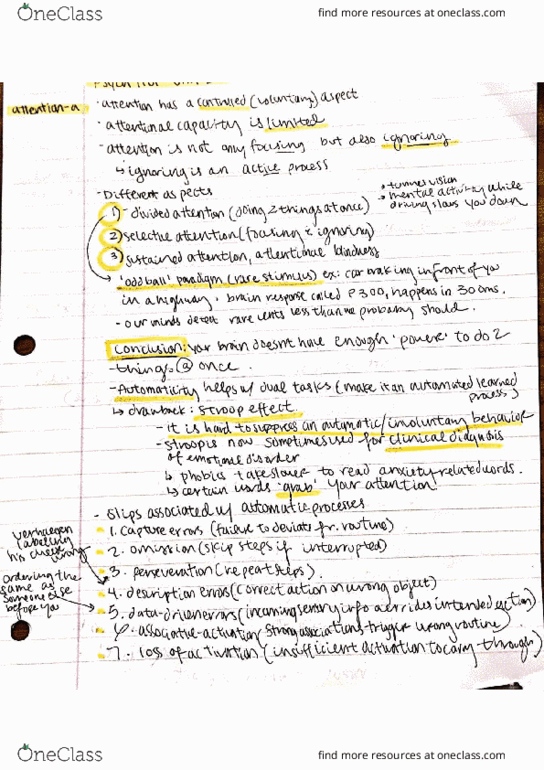 OneClass
find more resources at oneclass.com
attention-a
· attention has a controlled (voluntary) aspect
· attentional capacity is limited
- attention is not only focusing but also ignoring
↳ ignoring is an active process
- Different aspects
• tunnel vision
• mental activity while
driving slows you down
1) - divided attention (doing 2 things at once)
2) selective attention (focusing & ignoring)
3) sustained attention, attentional blindness
· 'oddball' paradigm (rare stimulus) ex: car braking in front of you
in a highway. brain response called P300, happens in 300ms.
- our minds detect rare events less than we probably should.
Conclusion: your brain doesn't have enough 'power' to do 2
things @ once.
- Automaticity helps w/ dual tasks (make it an automated learned
process)
↳ drawback: stroop effect.
- it is hard to suppress an automatic/involuntary behavior
- stroop is now sometimes used for clinical diagnosis
of emotional disorder
↳ phobics take slower to read anxiety-related words.
↳ certain words 'grab' your attention
- Slips associated w/ automatic processes
- 1. capture errors (failure to deviate fr. routine)
- 2. omission (skip steps if interrupted)
- 3. perseveration (repeat steps)
- 4. description errors (correct action on wrong object)
- 5. data-driven errors (incoming sensory info overrides intended action)
- 6. associative-activation (strong associations trigger wrong routine)
- 7. loss of activation (insufficient activation to carry through)
(labelling
his
wrong)
ordering the
same as
someone else
before you
OneClass
find more resources at oneclass.com